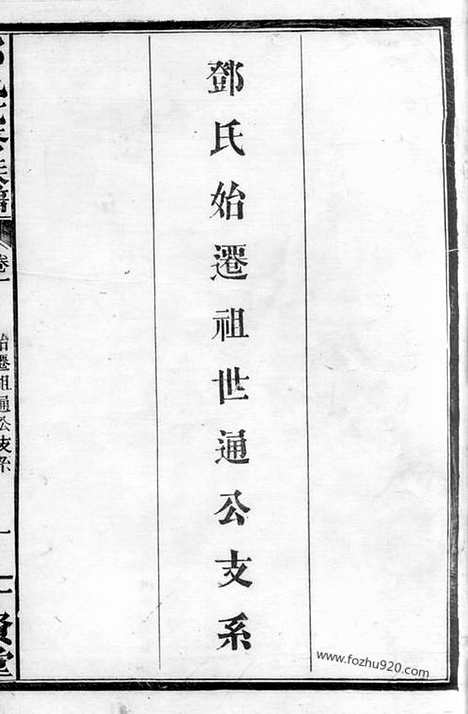 鄧氏始遷祖世通公支系
氏族譜
卷一
始遷祖通公支系
一
賢堂
www.fozhu920.com